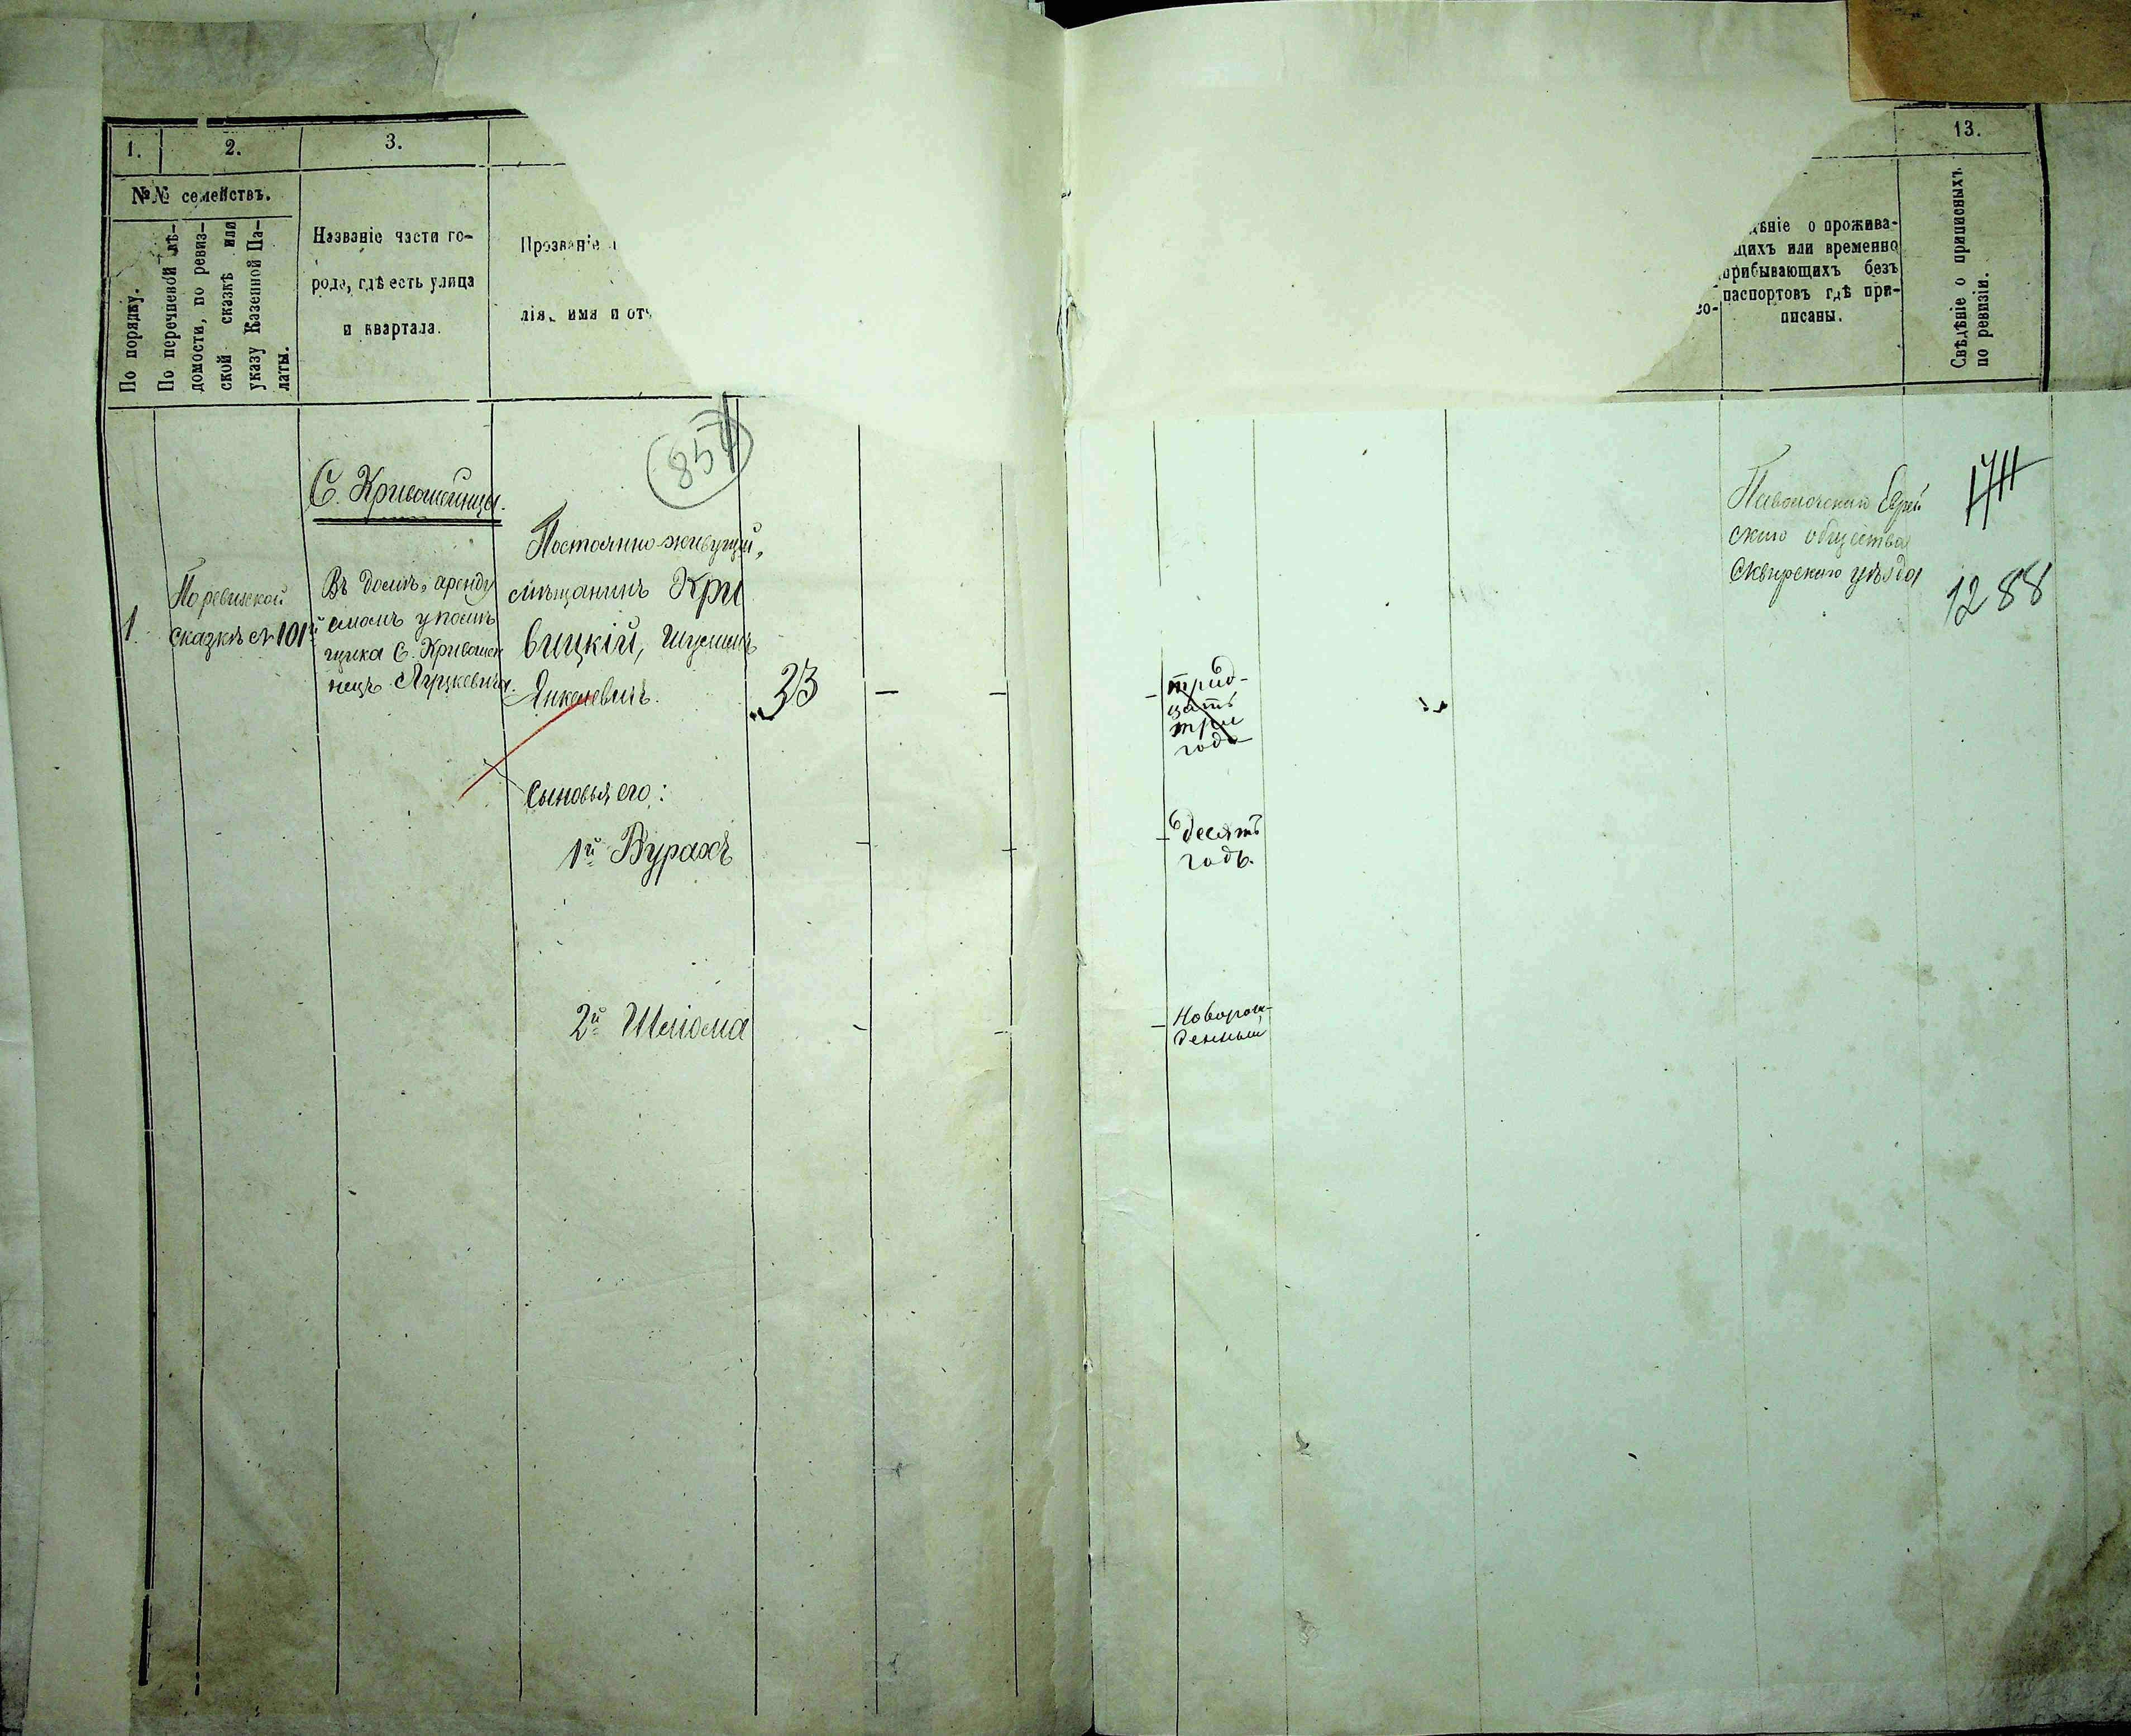 1.
2.
3.
13.
№№ семействъ.
По порядку.
По перечневой вѣ-
домости, по ревиз-
ской сказкѣ или
указу Казенной Па-
латы.
Названіе части го-
рода, гдѣ есть улица
и квартала.
Прозваніе
лія, имя и отч
со-
дѣніе о прожива-
щихъ или временно
прибывающихъ безъ
паспортовъ гдѣ при-
писаны.
Свѣдѣніе о приписныхъ
по ревизіи.
С. Кривошеинцы.
857
1.
По ревизской
сказкѣ № 101й
Въ домѣ, аренду
емомъ у помѣ
щика С. Кривошеи
нецъ
Постоянно живущій,
мѣщанинъ Кри
вицкій,
Янкелевичъ.
33
Сыновья его:
1й Вурахъ
2й Шлiома
трид-
цать
три
года
десять
годъ.
Новорож-
денный
Паволочскаго Еврей
скаго общества
Сквирскаго уѣзда
1288